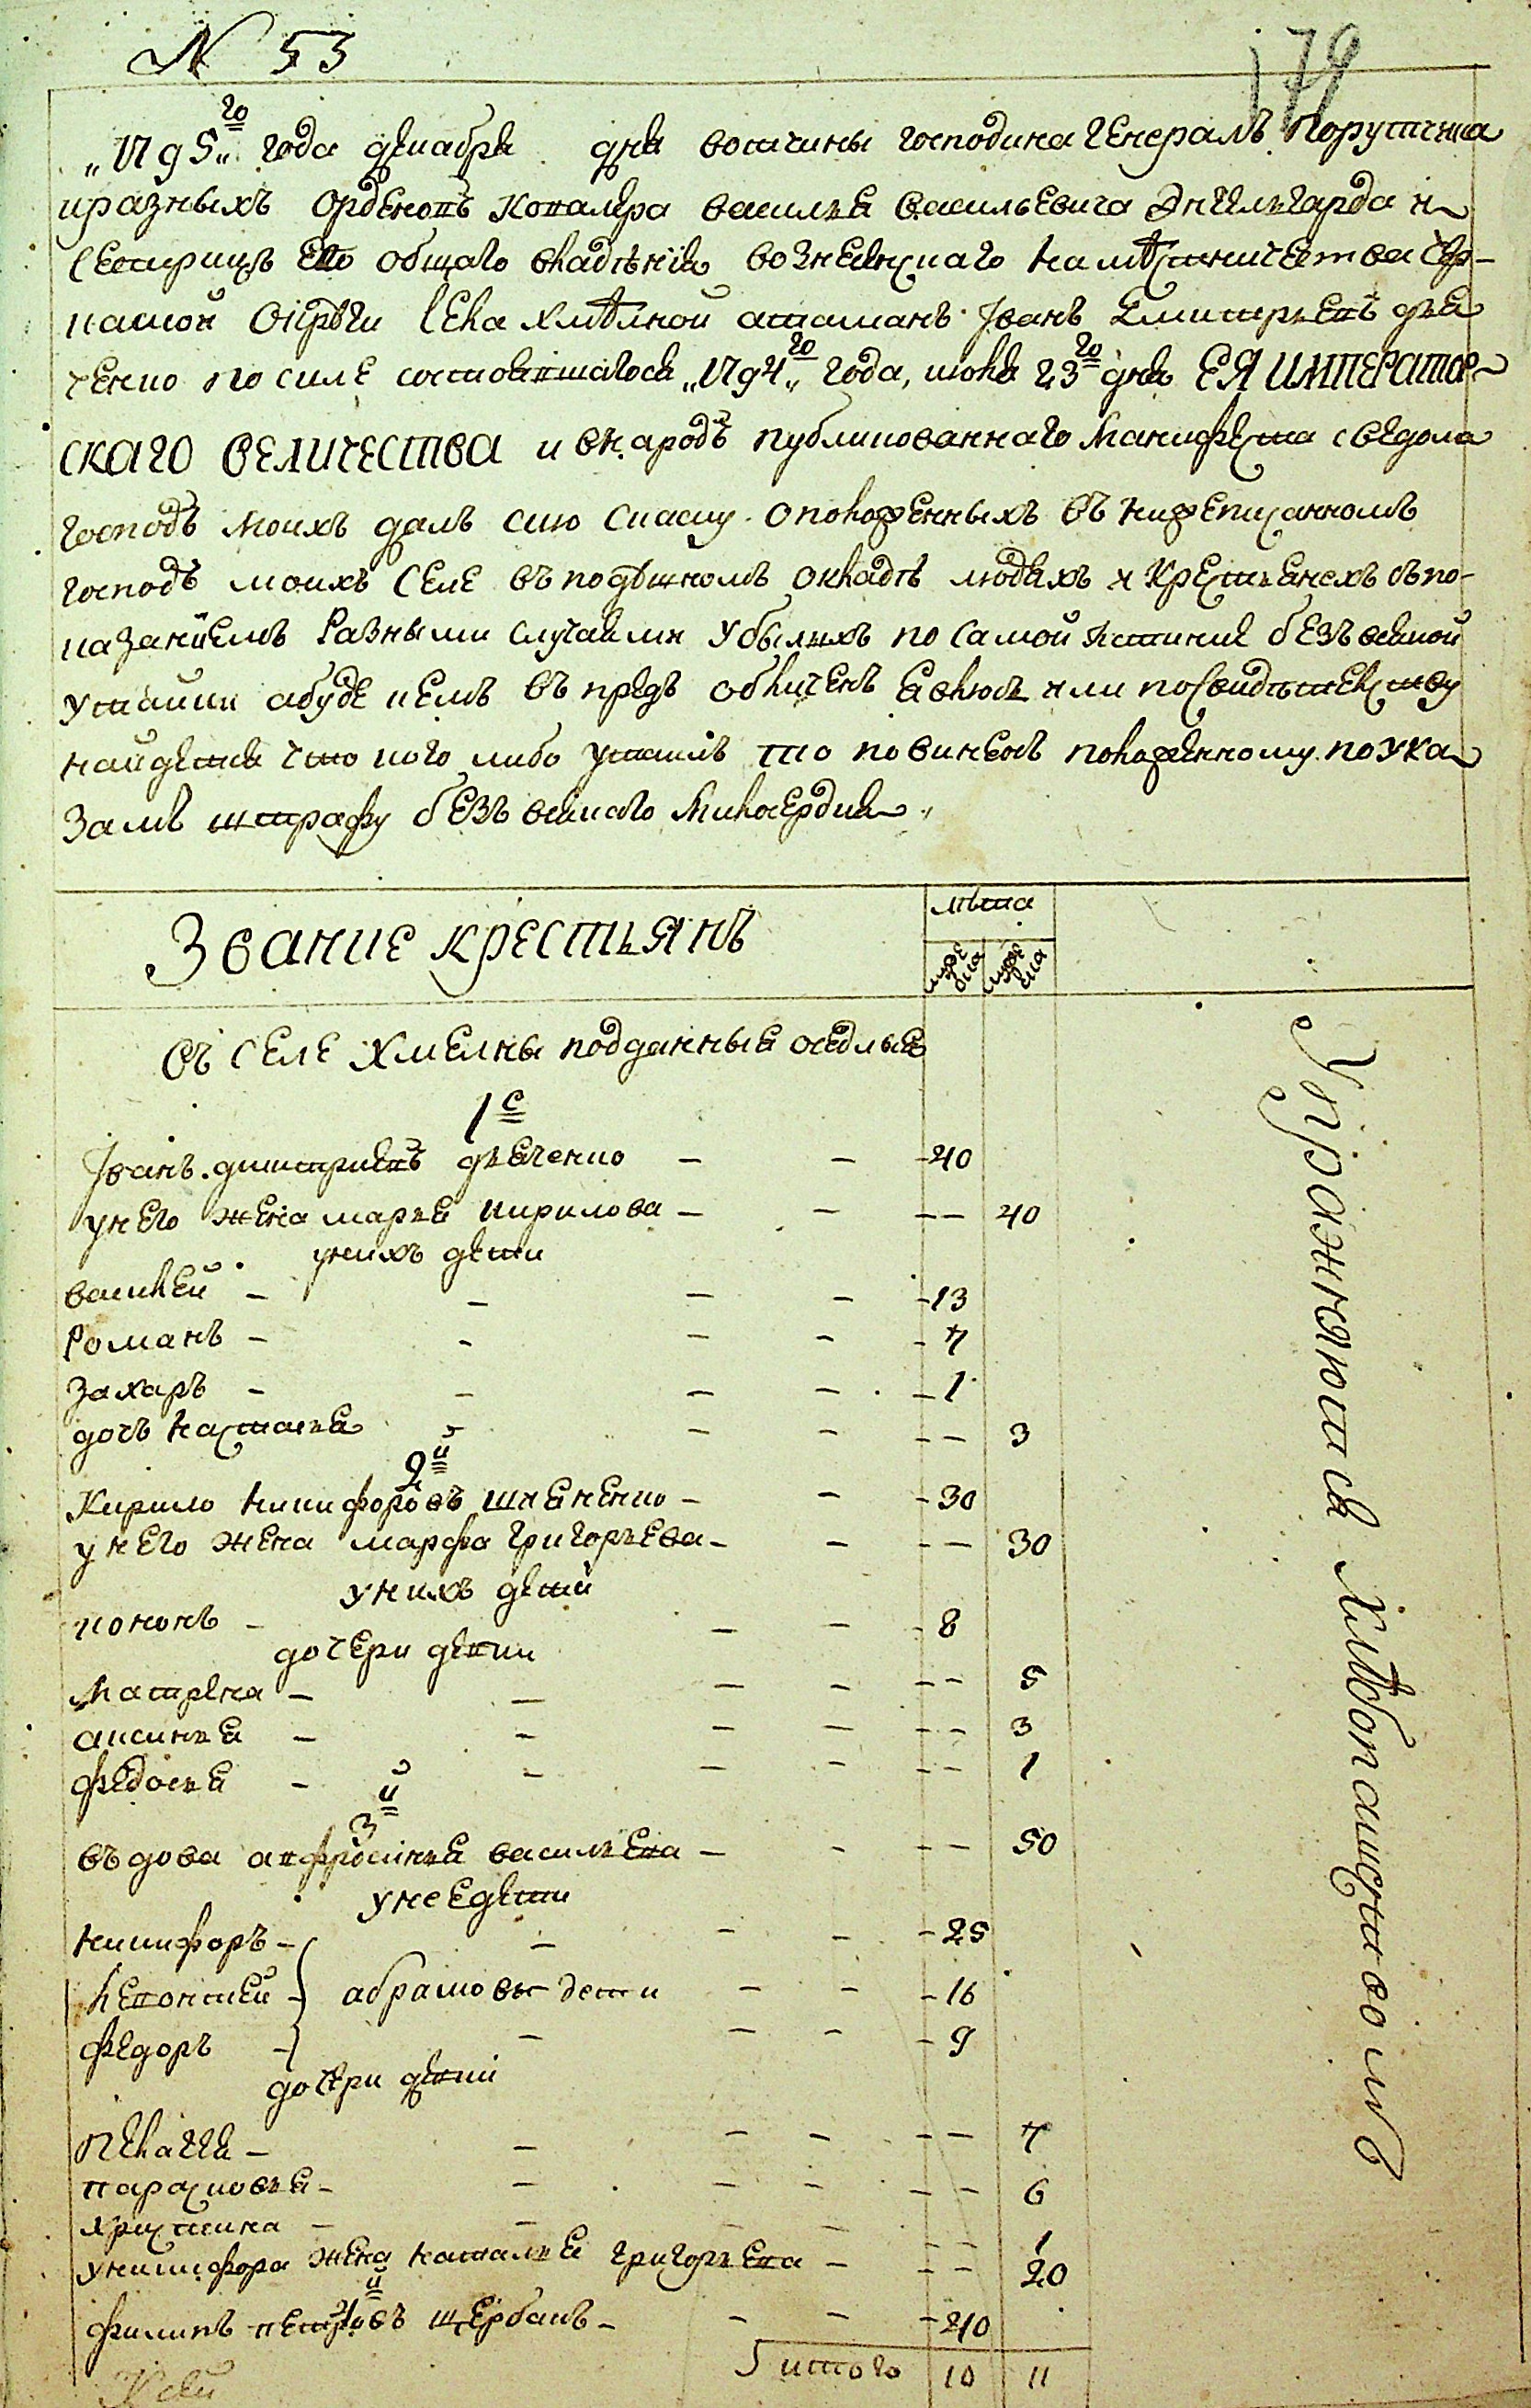 N 53
179
„1795„ го года декабря дня вотчины господина генералъ порутчика
и разныхъ орденовъ ковалера василия васильевича Энгелгарда и
сестрицъ его общаго владѣнїя вознесенскаго намѣстничества чер-
каской округи села хмѣлной атаманъ Іванъ дмитриевъ дья
ченко по силе состоявшагося „1794„ го года, июня 23 го дня ЕЯ ИМПЕРАТОР
СКАГО ВЕЛИЧЕСТВА и в народъ публикованнаго манифеста сведома
господъ моихъ далъ сию скаску о положенныхъ въ нижеписанномъ
господъ моихъ селе въ подушномъ окладѣ людяхъ и крестьянехъ съ по-
казанїемъ разными случаями убылыхъ по самой истинне безъ всякой
утайки а буде кемъ въ предъ обличенъ явлюся или по свидѣтелству
найдется что кого либо утаилъ то повиненъ положенному по ука
замъ штрафу безъ всякаго милосердия„
Звание крестьянъ
лѣта
муже ска
жен ска
Въ селе Хмелны подданныя оседлыя
1 е
Іванъ дмитриевъ дьяченко - - - 40
у него жена марья кирилова - - - - 40
у нихъ дети
василей - - - - - 13
Романъ - - - - - 7
Захаръ - - - - - 1
дочь настасья - - - - - 3
2 й
Кирило никифоровъ шияненко - - - 30
у него жена марфа григорьева - - - - 30
у нихъ дети
кононъ - - - - 8
дочери дети
Матрена - - - - - - 5
аксинья - - - - - - 3
федосья - - - - - - 1
3 й
въдова афросинья василева - - - - 50
у нее дети
никифоръ - - - - - 25
левонтей - абрамовы дети - - - 16
федоръ - - - - - 9
дочери дети
пелагея - - - - - - 7
парасковья - - - - - - 6
христина - - - - - - 1
у никифора жена наталья григорьева - - - 20
4 й
филипъ петровъ щербакъ - - - - 40
итого 10 11
Упражняются хлѣбопашествомъ